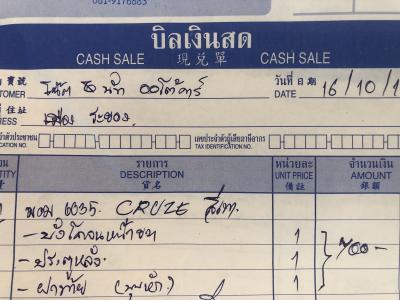 081-9176883
บิลเงินสด
CASH SALE 現兌單 CASH SALE
寶號
TOMER ออโต้คาร์ วันที่ 日期 DATE 16/10/1
住址
RESS เมือง ระยอง
ประจำตัวประชาชน
ICATION NO. เลขประจำตัวผู้เสียภาษีอากร TAX IDENTIFICATION NO.
รายการ หน่วยละ จำนวนเงิน
TITY DESCRIPTION UNIT PRICE AMOUNT
量 貨名 備註 銀額
CRUZE สีเทา
- บังโคลนหน้าขวา 1
- ประตูหลัง 1 700-
- ฝาท้าย 1